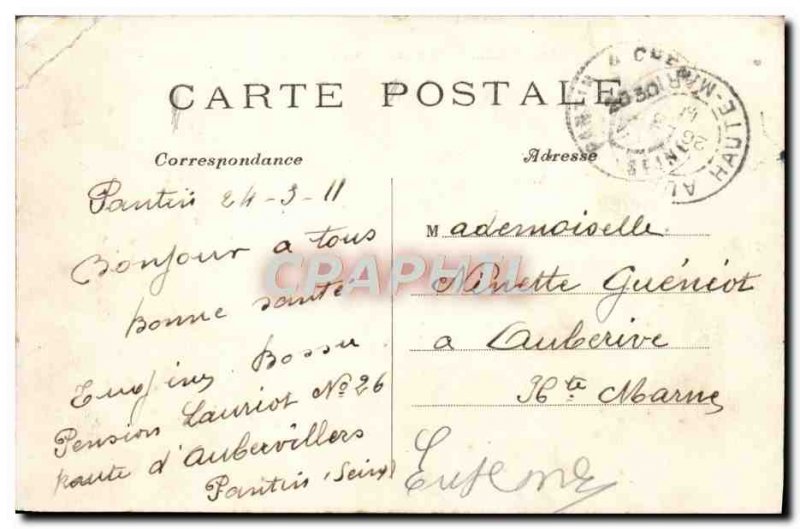 CARTE POSTALE
Correspondance
Adresse
Pantin 24-3-11
Bonjour a tous
bonne santé
Bossu
Pension Lauriot No 26
route d'Aubervillers
Pantin (Seine)
Mademoiselle
Ninette Guéniot
a Auberive
Hte Marne
Eugene
HAUTE-MARNE
CPAPHIL